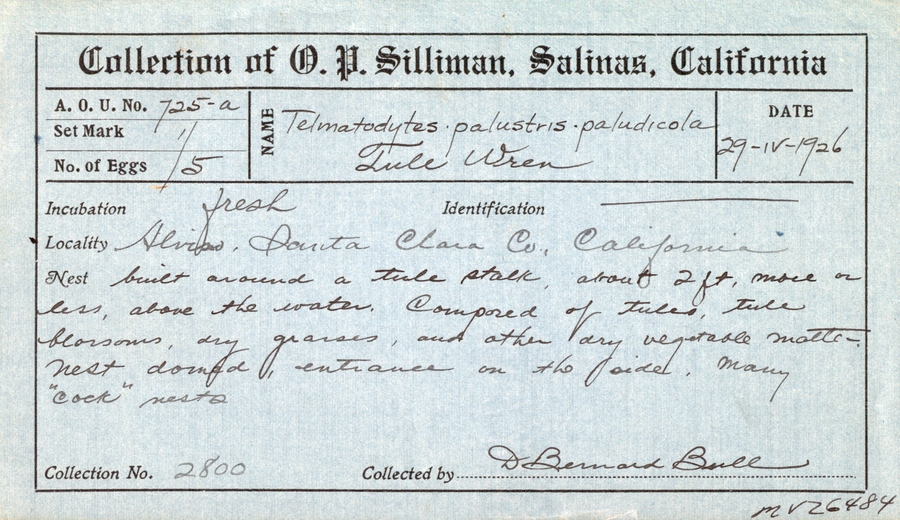 Collection of O. P. Silliman, Salinas, California
A. O. U. No. 725-a
Set Mark 11/5
No. of Eggs
NAME Telmatodytes·palustris·paludicola
Tule Wren
DATE
29-IV-1926
Incubation fresh Identification
Locality Alviso, Santa Clara Co., California
Nest built around a tule stalk, about 2 ft, more or
less, above the water. Composed of tules, tule
blossoms, dry grasses, and other dry vegetable matter.
Nest domed, entrance on the side. Many
"cock" nests
Collection No. 2800 Collected by D Bernard Bull
MVZ6484